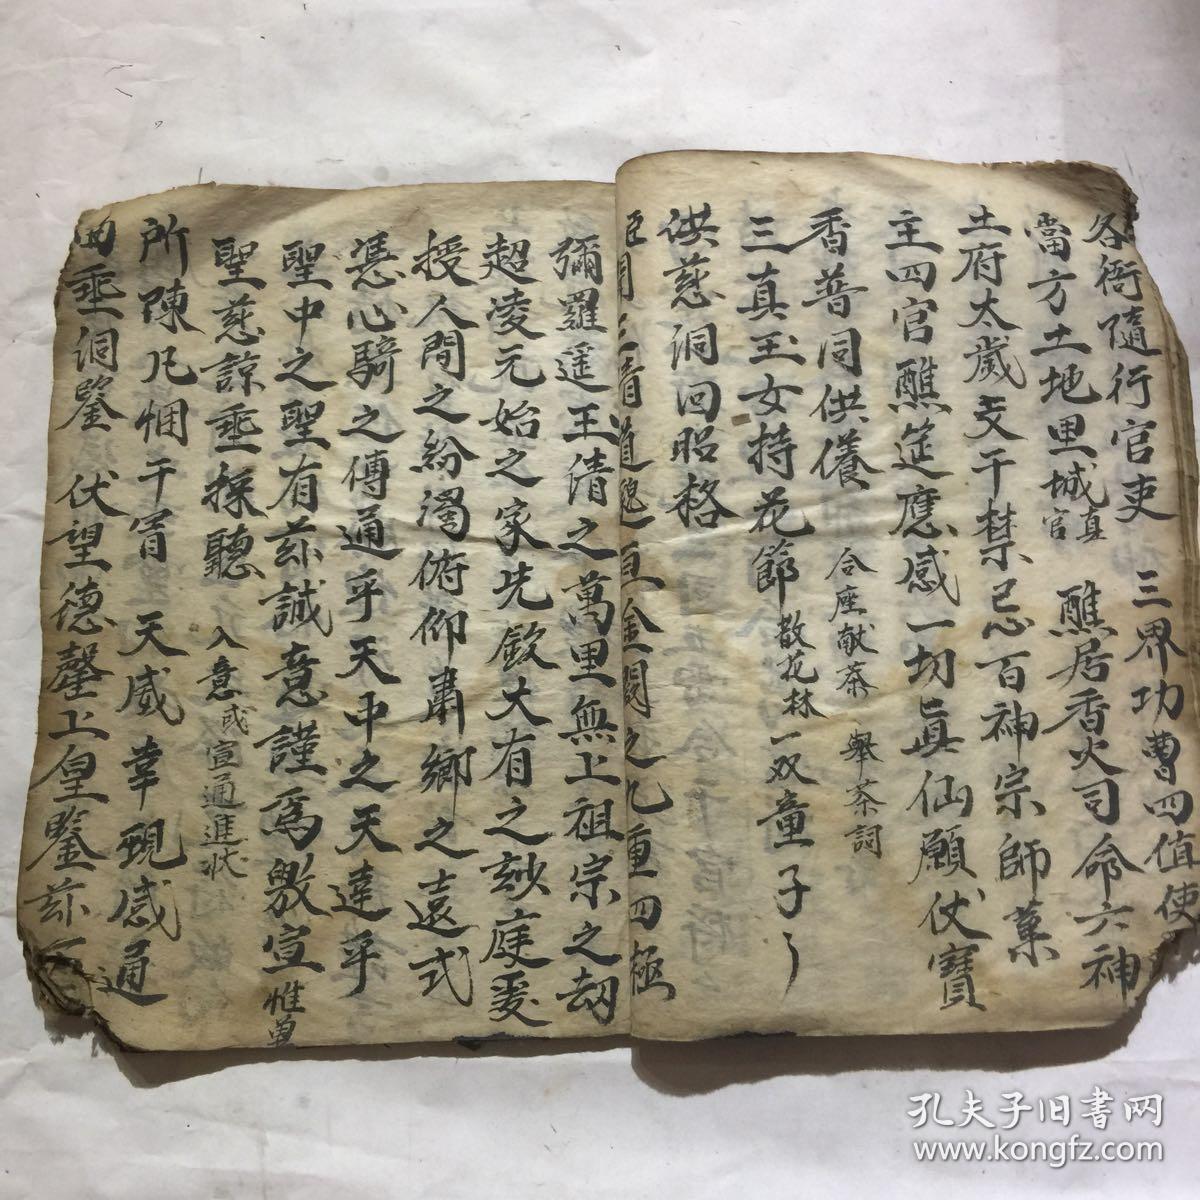 各衙隨行官吏 三界功曹四值使
當方土地里城真官 醮居香火司命六神
土府太歲支干禁忌百神宗師藁
主四官醮筵應感一切真仙願伏寶
香普同供養 合座献茶 舉茶詞
三真玉女持花節 散花林 一双童子
供慈洞回昭格
三清道 金闕之九重四極
彌羅遥王清之萬里無上祖宗之劫
超凌元始之家先敘大有之玅庭爰
授人間之紛濁俯仰肅鄉之遠式
憑心騎之傳通乎天中之天達乎
聖中之聖有茲誠意謹焉敷宣 惟尊
聖慈諒垂採聽 入意或宣通進狀
所陳凡悃干冒 天威幸現感通
曲垂洞鑒 伏望德馨上皇鑒茲
孔夫子旧书网
www.kongfz.com